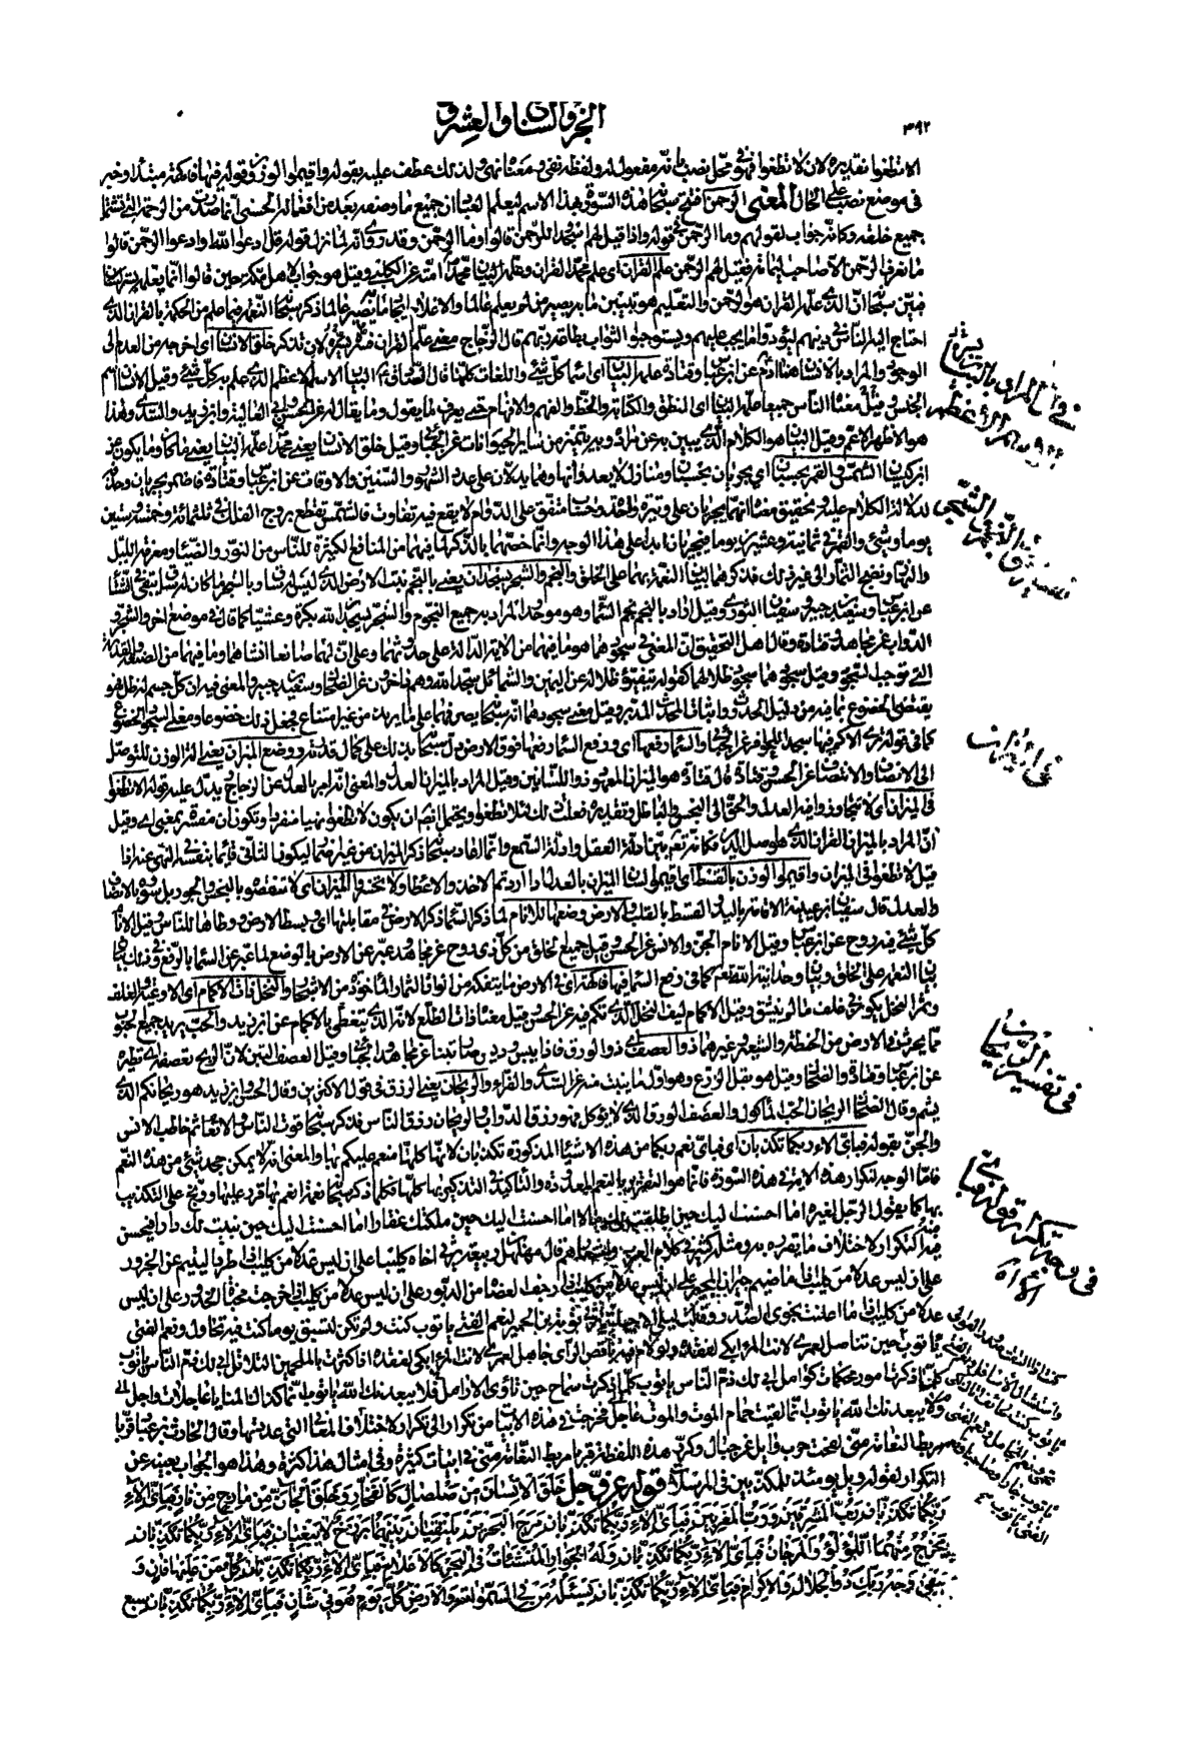 الجزء السابع والعشرون
٣٩٢
الا تطغوا تقديره لان لا تطغوا فهو في محل نصب بانه مفعول له ولفظه نفي ومعناه نهي ولذلك عطف عليه بقوله واقيموا الوزن وقوله فيها فاكهة مبتدأ وخبر
في موضع نصب على الحال المعنى الرحمن افتتح سبحانه هذه السورة بهذا الاسم ليعلم العباد ان جميع ما وصفه بعد من افعاله الحسنى انما صدرت من الرحمة التي تشمل
جميع خلقه وكانه جواب لقولهم وما الرحمن في قوله واذا قيل لهم اسجدوا للرحمن قالوا وما الرحمن وقد روي انه لما نزل قوله قل ادعوا الله او ادعوا الرحمن قالوا
ما نعرف الرحمن الا صاحب اليمامة فقيل لهم الرحمن علم القران اي علم محمدا القران وعلمه
فبين سبحانه ان الذي علمه القران هو الرحمن والتعليم هو تبيين ما به يصير من لم يعلم عالما والاعلام ايجاد ما به يصير عالما ذكر سبحانه النعمة فيما علم من الحكمة بالقران الذي
احتاج اليه الناس في دينهم ليؤدوا ما يجب عليهم ويستوجبوا الثواب بطاعة ربهم قال الزجاج معنى علم القران يسره لان يذكر خلق الانسان اي اخرجه من العدم الى
الوجود والمراد بالانسان هنا ادم عن ابن عباس وقتادة علمه البيان اي اسماء كل شيء واللغات كلها قال الصادق البيان الاسم الاعظم الذي علم به كل شيء وقيل الانسان اسم
الجنس وقيل معناه الناس جميعا علمه البيان اي النطق والكتابة والخط والفهم والافهام حتى يعرف ما يقول وما يقال له عن الحسن وابي العالية وابن زيد والسدي وهذا
هو الاظهر الاعم وقيل البيان هو الكلام الذي يبين به عن مراده وبه يتميز من سائر الحيوانات عن الجبائي وقيل خلق الانسان يعني محمدا علمه البيان يعني ما كان وما يكون عن
ابن كيسان الشمس والقمر بحسبان اي يجريان بحسبان ومنازل لا يعدوانها وهما يدلان على عدد الشهور والسنين والاوقات عن ابن عباس وقتادة فاضمر يجريان وحذفه
لدلالة الكلام عليه وتحقيق معناه انهما يجريان على وتيرة واحدة وحساب متفق على الدوام لا يقع فيه تفاوت فالشمس تقطع بروج الفلك في ثلثمائة وخمسة وستين
يوما وشيء والقمر في ثمانية وعشرين يوما فيجريان ابدا على هذا الوجه وانما خصهما بالذكر لما فيهما من المنافع الكثيرة للناس من النور والضياء ومعرفة الليل
والنهار ونضج الثمار الى غير ذلك فذكرهما لبيان النعمة بهما على الخلق والنجم والشجر يسجدان يعني بالنجم نبت الارض الذي ليس له ساق وبالشجر ما كان له ساق يبقى في الشتاء
عن ابن عباس وسعيد بن جبير وسفيان الثوري وقيل اراد بالنجم نجم السماء وهو موحد والمراد به جميع النجوم والشجر يسجد لله بكرة وعشيا كما قال في موضع اخر والشجر
والدواب عن مجاهد وقتادة وقال اهل التحقيق ان المعنى في سجودهما هو ما فيهما من الاية الدالة على حدوثهما وعلى ان لهما صانعا انشاهما وما فيهما من الصنعة والقدرة
التي توجب السجود وقيل سجودهما سجود ظلالهما كقوله يتفيؤ ظلاله عن اليمين والشمائل سجدا لله وهم داخرون عن الضحاك وسعيد بن جبير والمعنى فيه ان كل جسم له ظل فهو
يقتضي الخضوع بما فيه من دليل الحدوث واثبات المحدث المدبر وقيل معنى سجودهما انه سبحانه يصرفهما على ما يريده من غير امتناع فجعل ذلك خضوعا ومعنى السجود الخضوع
كما في قوله ترى الاكم فيها سجدا للحوافر عن الجبائي والسماء رفعها اي ورفع السماء رفعها فوق الارض دل سبحانه بذلك على كمال قدرته ووضع الميزان يعني الة الوزن للتوصل
الى الانصاف والانتصاف عن الحسن وقتادة قال قتادة هو الميزان المعهود ذو اللسانين وقيل المراد بالميزان العدل والمعنى انه امر بالعدل عن الزجاج يدل عليه قوله الا تطغوا
في الميزان اي لا تتجاوزوا فيه العدل والحق الى البخس والباطل وتقديره فعلت ذلك لئلا تطغوا ويحتمل ايضا ان يكون لا تطغوا نهيا منفردا وتكون ان مفسرة بمعنى اي وقيل
ان المراد بالميزان القران الذي هو اصل الدين فكانه تعالى بين ادلة العقل وادلة السمع وانما اعاد سبحانه ذكر الميزان من غير اضمار ليكون الثاني قائما بنفسه في النهي عنه اذا
قيل لا تطغوا في الميزان واقيموا الوزن بالقسط اي اقيموا لسان الميزان بالعدل اذا اردتم الاخذ والاعطاء ولا تخسروا الميزان اي لا تنقصوه بالبخس والجور بل سووه بالانصاف
والعدل قال سفيان بن عيينة الاقامة باليد والقسط بالقلب والارض وضعها للانام لما ذكر السماء ذكر الارض في مقابلتها اي وبسط الارض ووطاها للناس وقيل الانام
كل شيء فيه روح عن ابن عباس وقيل الانام الجن والانس عن الحسن وقيل جميع الخلق من كل ذي روح عن مجاهد وعبر عن الارض بالوضع لما عبر عن السماء بالرفع وفي ذلك بيان
النعمة على الخلق وبيان وحدانية الله تعالى كما في رفع السماء فيها فاكهة اي في الارض ما يتفكه به من الوان الثمار الماخوذة من الاشجار والنخل ذات الاكمام اي الاوعية والغلف
وثمر النخل يكون في غلف ما لم ينشق وقيل الاكمام ليف النخل الذي تكم فيه عن الحسن وقيل معناه ذات الطلع لانه الذي يتغطى بالاكمام عن ابن زيد والحب يريد جميع الحبوب
مما يحرث في الارض من الحنطة والشعير وغيرهما ذو العصف اي ذو الورق فاذا يبس وديس صار تبنا عن مجاهد والجبائي وقيل العصف التبن لان الريح تعصفه اي تطيره
عن ابن عباس وقتادة والضحاك وقيل هو بقل الزرع وهو اول ما ينبت منه عن السدي والفراء والريحان يعني الرزق في قول الاكثرين وقال الحسن وابن زيد هو ريحانكم الذي
يشم وقال الضحاك الريحان الحب الماكول والعصف الورق الذي لا يؤكل فهو رزق الدواب والريحان رزق الناس فذكر سبحانه قوت الناس والانعام ثم خاطب الانس
والجن بقوله فباي الاء ربكما تكذبان اي فباي نعم ربكما من هذه الاشياء المذكورة تكذبان لانها كلها منعم عليكم بها والمعنى انه لا يمكن جحد شيء من هذه النعم
فاما الوجه لتكرار هذه الاية في هذه السورة فانما هو التقرير بالنعم المعدودة والتاكيد في التذكير بها كلها فكلما ذكر سبحانه نعمة انعم بها قرر عليها ووبخ على التكذيب
بها كما يقول الرجل لغيره اما احسنت اليك حين اطلقت لك مالا اما احسنت اليك حين ملكتك عقارا اما احسنت اليك حين بنيت لك دارا فيحسن
فيه التكرار لاختلاف ما يقرره به ومثله كثير في كلام العرب واشعارهم قال مهلهل بن ربيعة يرثي اخاه كليبا على ان ليس عدلا من كليب اذا طرد اليتيم عن الجزور
على ان ليس عدلا من كليب اذا ما ضيم جيران المجير على ان ليس عدلا من كليب اذا رجف العضاه من الدبور على ان ليس عدلا من كليب اذا خرجت مخباة الخدور على ان ليس
عدلا من كليب اذا ما اعلنت نجوى الصدور وقالت ليلى الاخيلية ترثي توبة بن الحمير لنعم الفتى يا توب كنت ولم تكن لتسبق يوما كنت فيه تحاول ونعم الفتى
يا توب حين تناضل لعمري لانت المرء ابكي لفقده
ذكرت امور محكمات كوامل ابى لك ذم الناس يا توب كلما ذكرت سماح حين تاوي الارامل فلا يبعدنك الله يا توب انما كذاك المنايا عاجلات واجل
ولا يبعدنك الله يا توب انما لقيت حمام الموت والموت عاجل فخرجت في هذه الابيات من تكرار الى تكرار لاختلاف المعاني التي عددتها وقال الحارث بن عباد قربا
مربط النعامة مني لقحت حرب وائل عن حيال وكرر هذه اللفظة قربا مربط النعامة مني في ابيات كثيرة وفي امثال هذا كثرة وهذا هو الجواب بعينه عن
التكرار لقوله ويل يومئذ للمكذبين في المرسلات قوله عز وجل خَلَقَ الْاِنْسَانَ مِنْ صَلْصَالٍ كَالْفَخَّارِ وَخَلَقَ الْجَانَّ مِنْ مَارِجٍ مِنْ نَارٍ فَبِاَيِّ الاءِ
رَبِّكُمَا تُكَذِّبَانِ رَبُّ الْمَشْرِقَيْنِ وَرَبُّ الْمَغْرِبَيْنِ فَبِاَيِّ الاءِ رَبِّكُمَا تُكَذِّبَانِ مَرَجَ الْبَحْرَيْنِ يَلْتَقِيَانِ بَيْنَهُمَا بَرْزَخٌ لَا يَبْغِيَانِ فَبِاَيِّ الاءِ رَبِّكُمَا تُكَذِّبَانِ
يَخْرُجُ مِنْهُمَا اللُّؤْلُؤُ وَالْمَرْجَانُ فَبِاَيِّ الاءِ رَبِّكُمَا تُكَذِّبَانِ وَلَهُ الْجَوَارِ الْمُنْشَئَاتُ فِي الْبَحْرِ كَالْاَعْلَامِ فَبِاَيِّ الاءِ رَبِّكُمَا تُكَذِّبَانِ كُلُّ مَنْ عَلَيْهَا فَانٍ وَ
يَبْقَى وَجْهُ رَبِّكَ ذُو الْجَلَالِ وَالْاِكْرَامِ فَبِاَيِّ الاءِ رَبِّكُمَا تُكَذِّبَانِ يَسْئَلُهُ مَنْ فِي السَّمٰوَاتِ وَالْاَرْضِ كُلَّ يَوْمٍ هُوَ فِي شَأْنٍ فَبِاَيِّ الاءِ رَبِّكُمَا تُكَذِّبَانِ سبع
في تفسير الريحان
في وجه تكرار قوله فباي
الاء